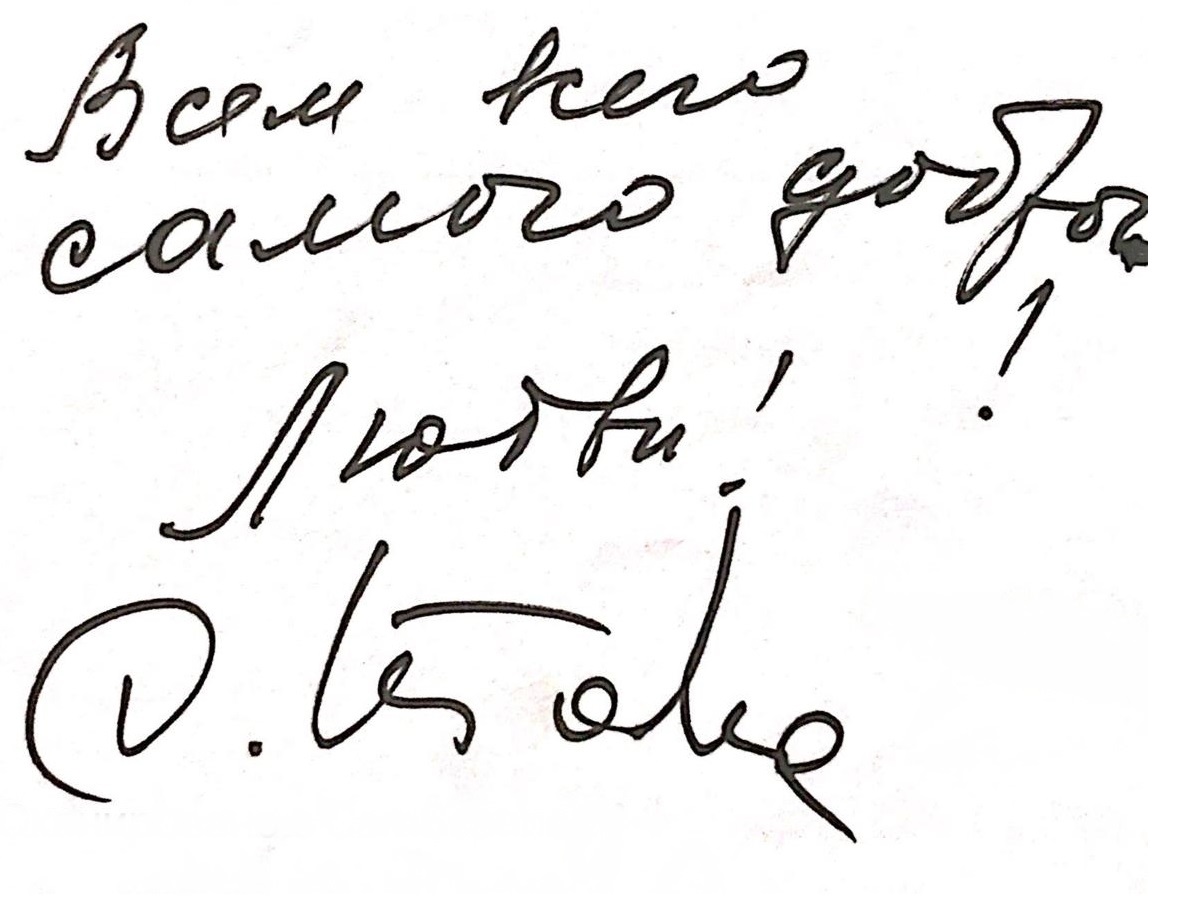 Всем всего
самого доброго
!
Любви!